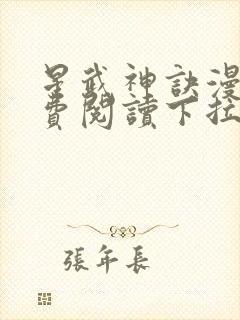 星武神訣漫
費閱讀下拉
張年長